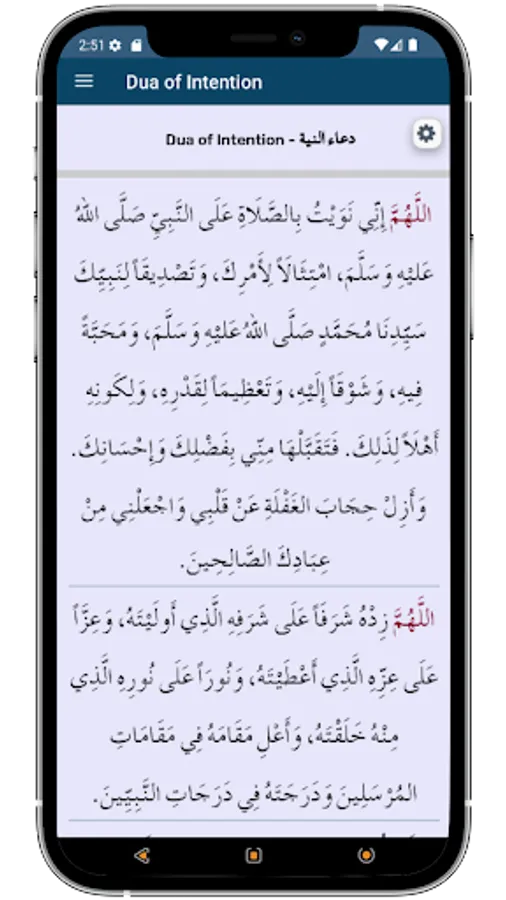 2:51
Dua of Intention
Dua of Intention - دعاء النية
اللَّهُمَّ إِنِّي نَوَيْتُ بِالصَّلَاةِ عَلَى النَّبِيِّ صَلَّى اللهُ
عَلَيْهِ وَسَلَّمَ، امْتِثَالَاً لِأَمْرِكَ، وَتَصْدِيقَاً لِنَبِيِّكَ
سَيِّدِنَا مُحَمَّدٍ صَلَّى اللهُ عَلَيْهِ وَسَلَّمَ، وَمَحَبَّةً
فِيهِ، وَشَوْقَاً إِلَيْهِ، وَتَعْظِيمَاً لِقَدْرِهِ، وَلِكَونِهِ
أَهْلَاً لِذَلِكَ. فَتَقَبَّلْهَا مِنِّي بِفَضْلِكَ وَإِحْسَانِكَ.
وَأَزِلْ حِجَابَ الغَفْلَةِ عَنْ قَلْبِي وَاجْعَلْنِي مِنْ
عِبَادِكَ الصَّالِحِينَ.
اللَّهُمَّ زِدْهُ شَرَفَاً عَلَى شَرَفِهِ الَّذِي أَولَيْتَهُ، وَعِزَّاً
عَلَى عِزِّهِ الَّذِي أَعْطَيْتَهُ، وَنُورَاً عَلَى نُورِهِ الَّذِي
مِنْهُ خَلَقْتَهُ، وَأَعْلِ مَقَامَهُ فِي مَقَامَاتِ
المُرْسَلِينَ وَدَرَجَتَهُ فِي دَرَجَاتِ النَّبِيِّينَ.